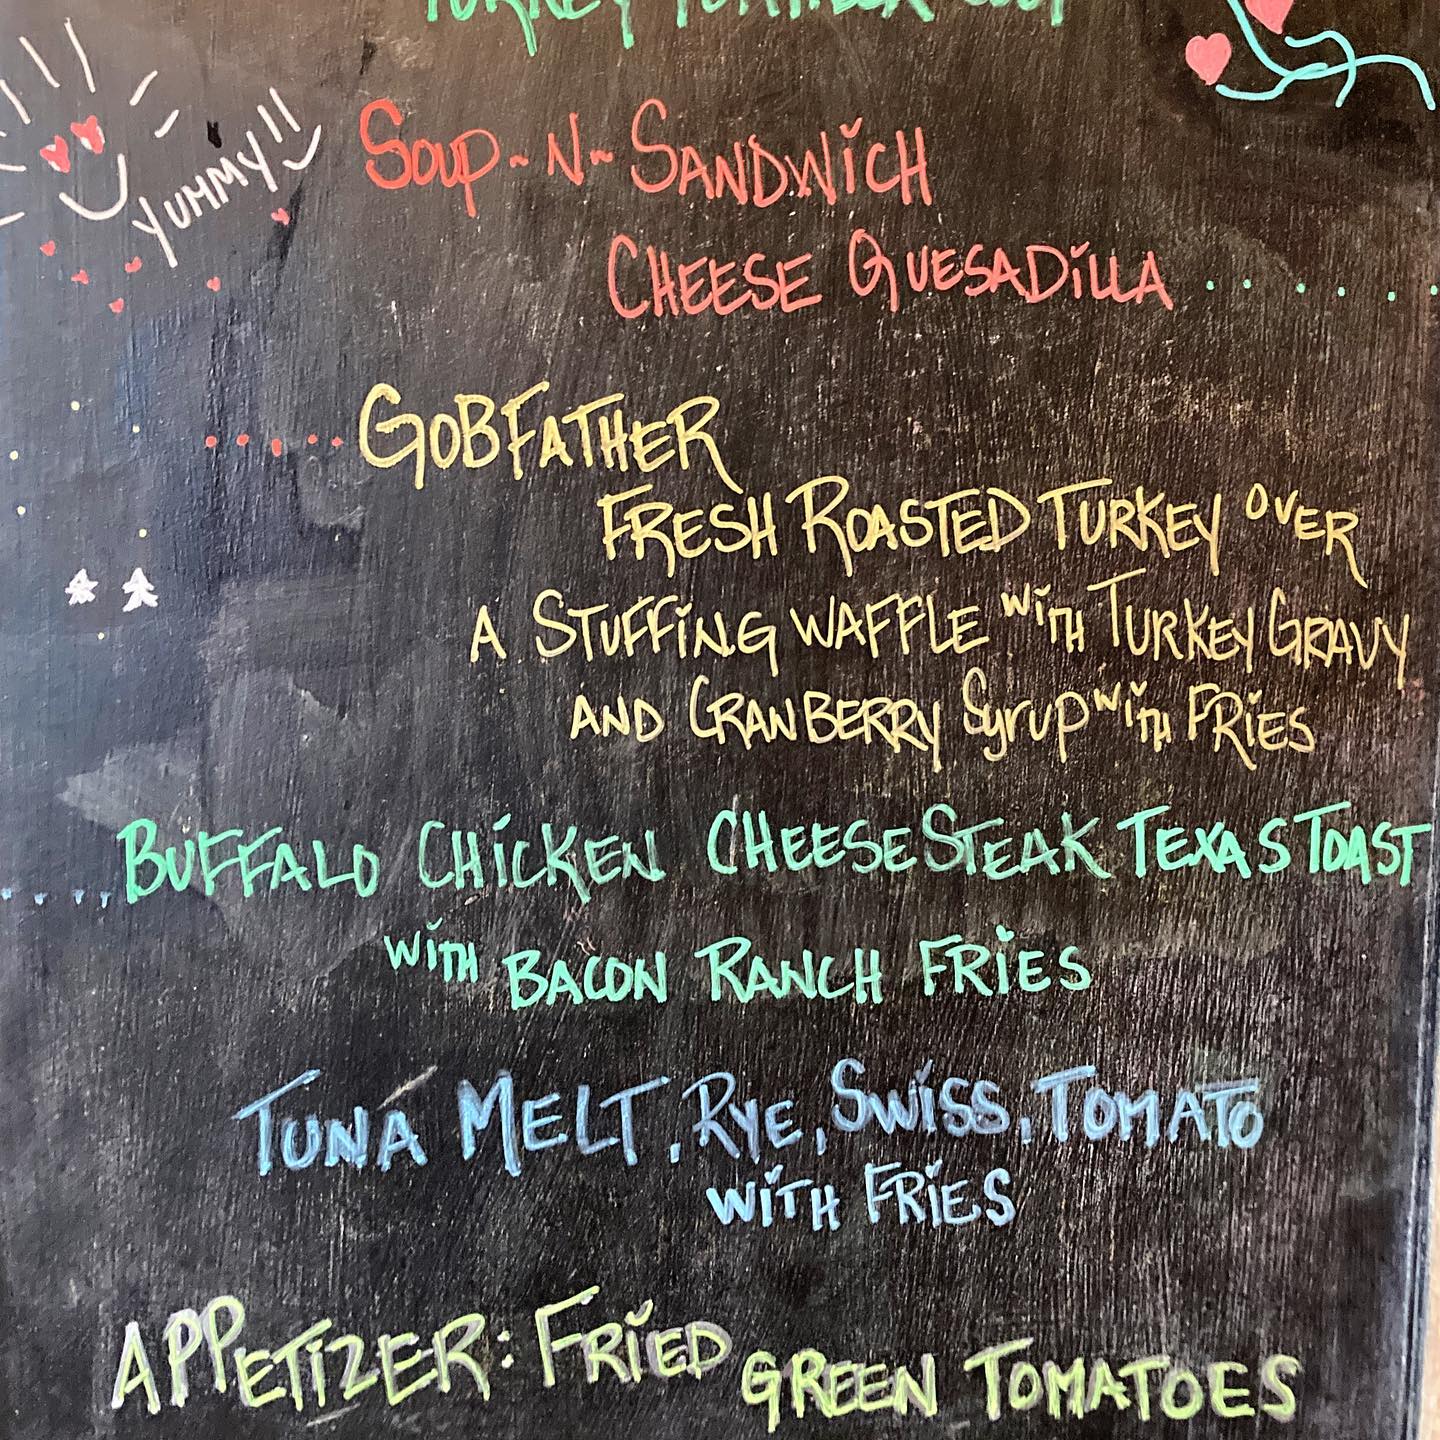 TURKEY
SOUP-N-SANDWICH
YUMMY!!
CHEESE QUESADILLA
GOBFATHER
FRESH ROASTED TURKEY OVER
A STUFFING WAFFLE WITH TURKEY GRAVY
AND CRANBERRY SYRUP WITH FRIES
BUFFALO CHICKEN CHEESESTEAK TEXAS TOAST
WITH BACON RANCH FRIES
TUNA MELT, RYE, SWISS, TOMATO
WITH FRIES
APPETIZER: FRIED GREEN TOMATOES